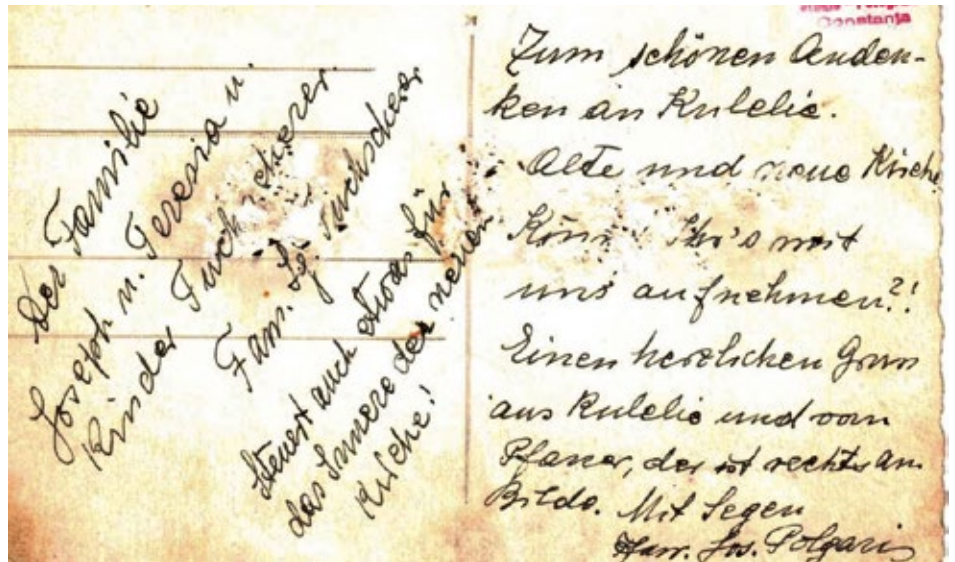 Der Familie
Joseph u. Teresia u.
Kinder Tuchscherer
Fam. Tuchscherer
Steuert auch etwas für
das Innere der neuen
Kirche!
Constanța
Zum schönen Anden-
ken an Kulelie.
Alte und neue Kirche
Könnt Ihr's mit
uns aufnehmen?!
Einen herzlichen Gruss
aus Kulelie und vom
Pfarrer, der ist rechts am
Bilde. Mit Segen
Pfarr. Jos. Polgari